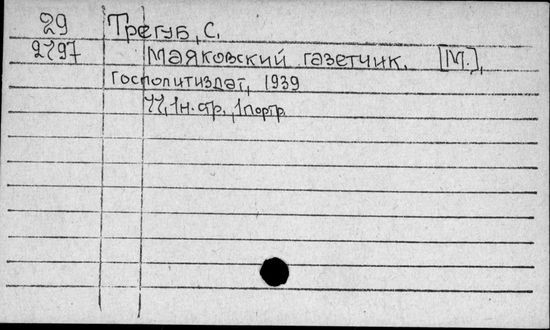 29 Трегуб, С.
2797 Маяковский газетчик. [М.],
Госполитиздат, 1939
77, 1 н. стр., 1 портр.